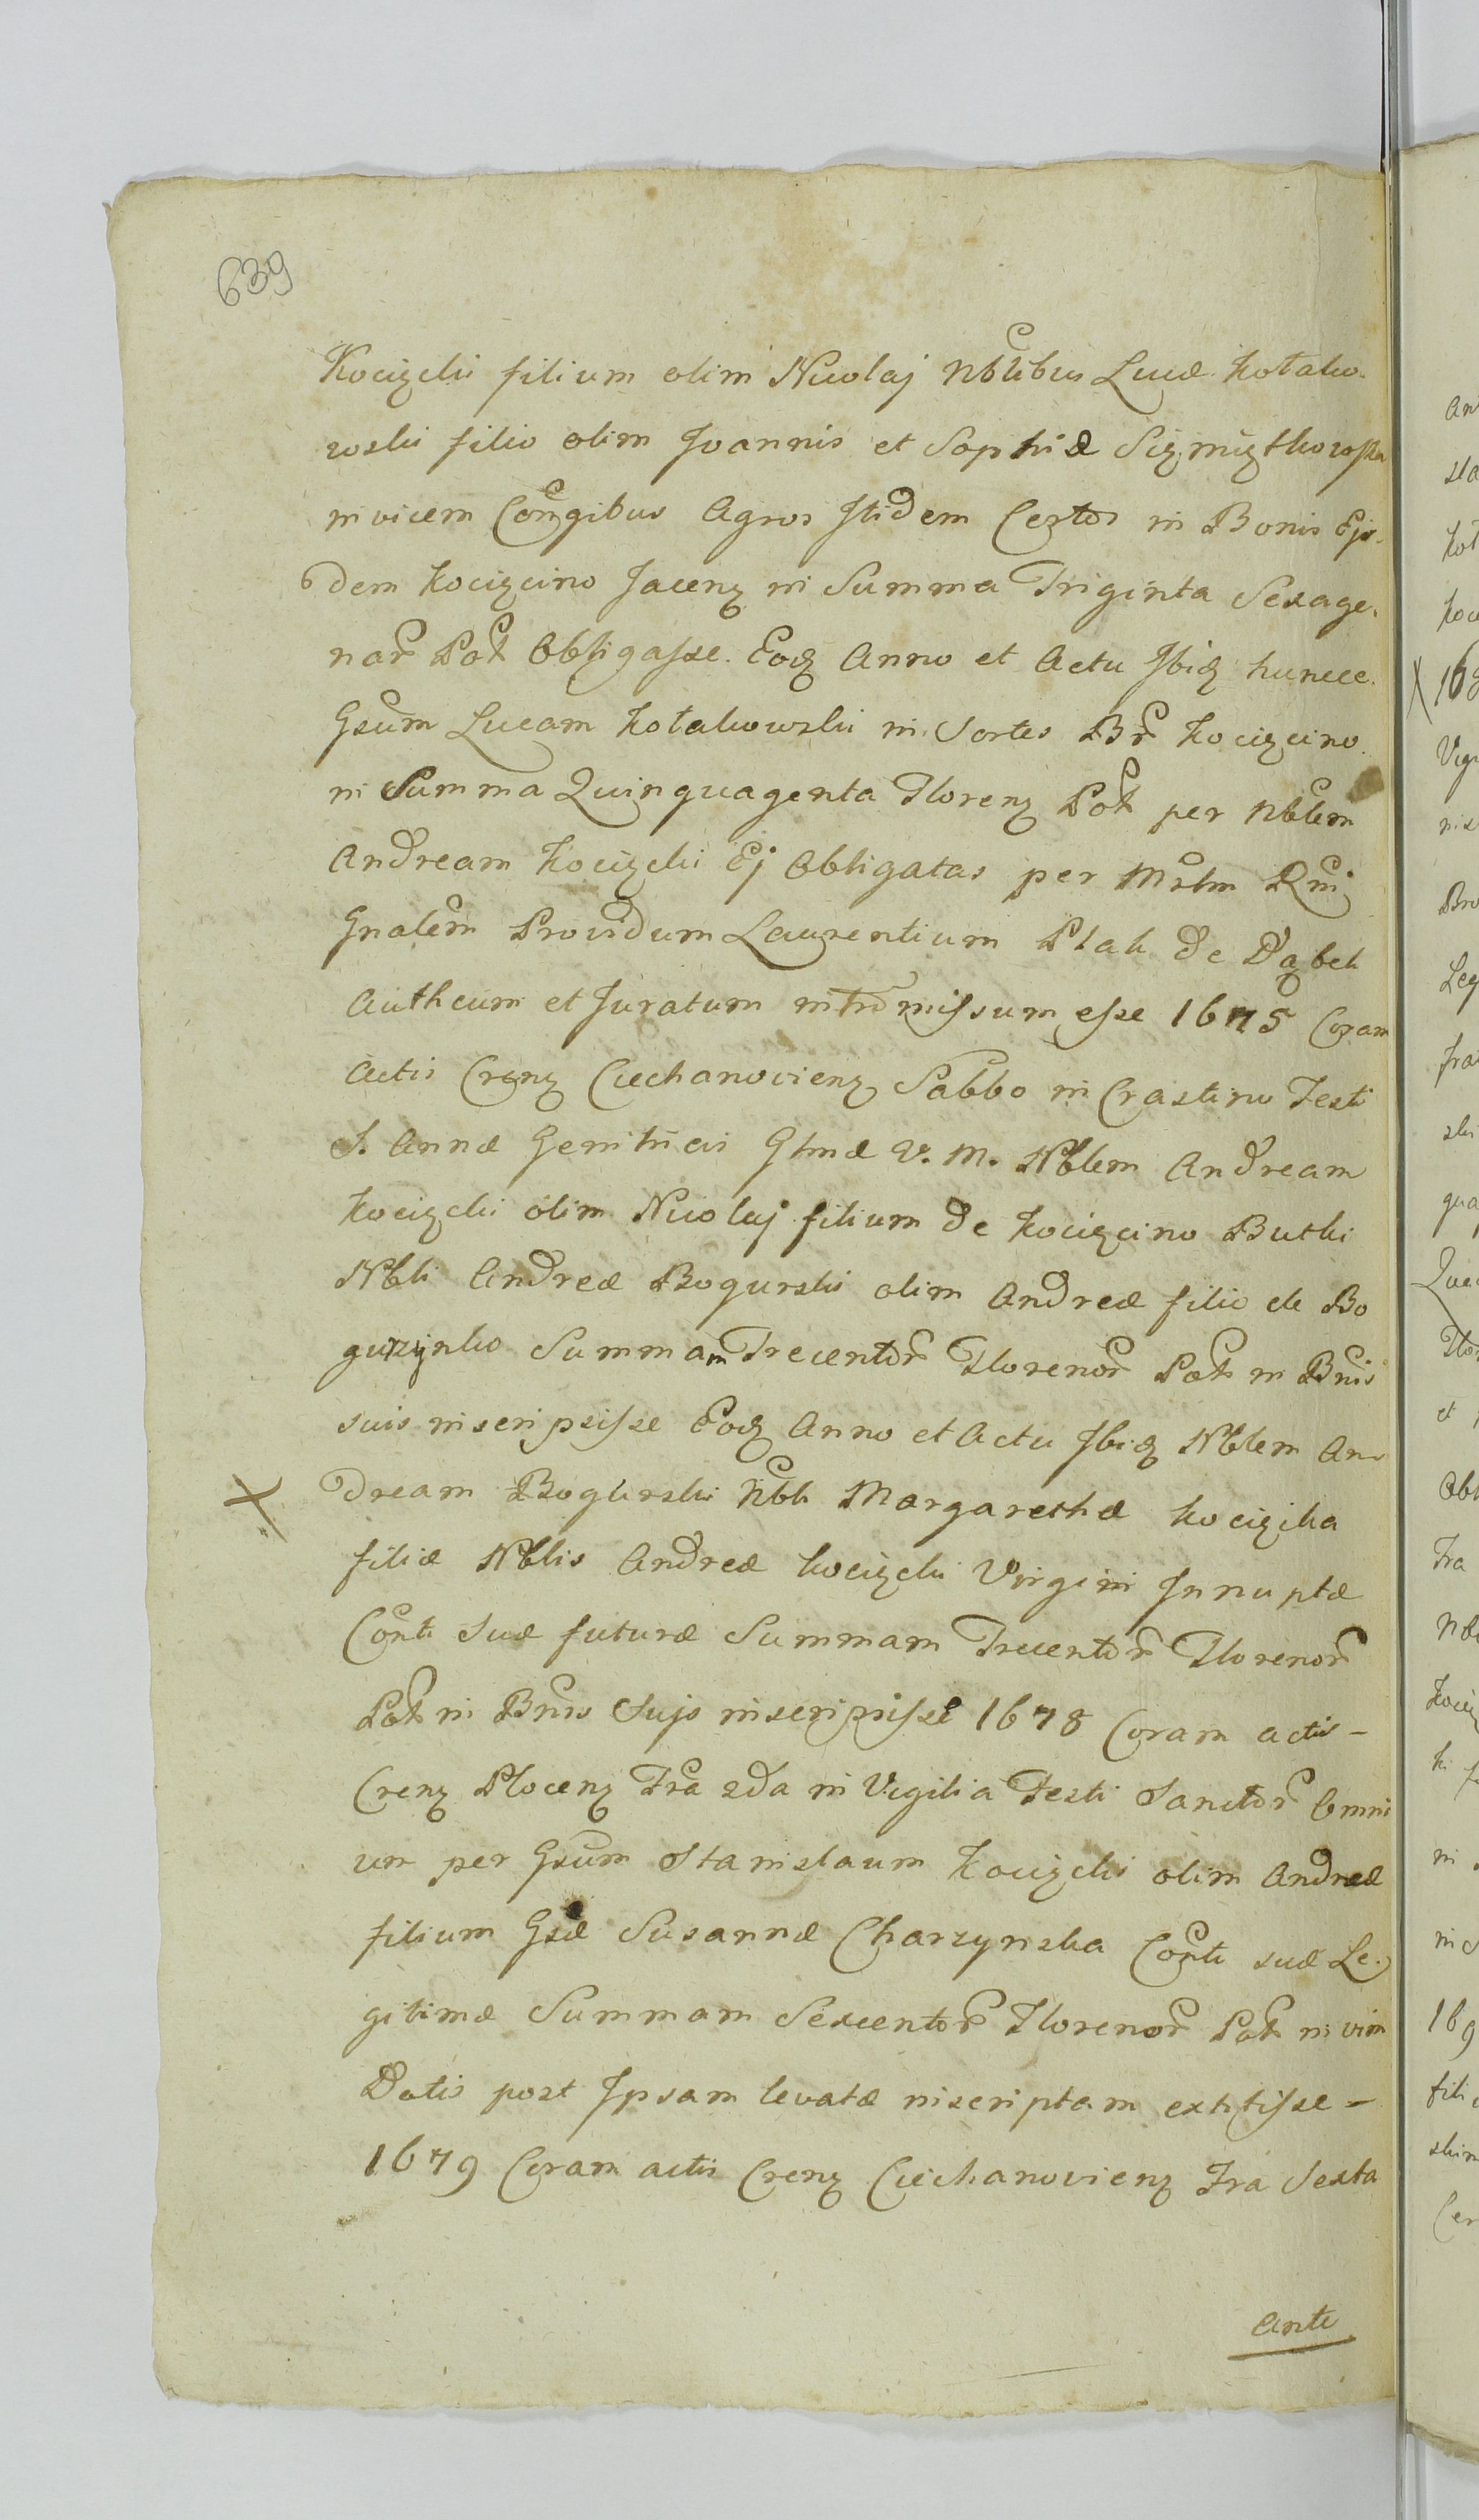 639
Kocięcki filium olim Nicolaj Nblibus Lucæ Kołako-
wski filio olim Joannis et Sophiæ Sięmiątkowska
invicem Conjugibus Agros Itidem Certos in Bonis Ejs-
dem Kocięcino Jacenz in Summa Triginta Sexage-
nar Pol Obligasse. Eodz Anno et Actu Ibidz hunce.
Gsum Lucam Kołakowski in Sortes Br Kocięcino
in Summa Quinquagenta Florenz Pol per Nblem
Andream Kocięcki Ej Obligatas per Mrlm Rni
Gnalem Providum Laurentium Ptak de Dąbek
Authcum et Juratum intromissum esse 1675 Coram
Actis Crenz Ciechanovienz Sabbo in Crastino Festi
S. Annæ Genitricis Glmæ V. M. Nblem Andream
Kocięcki olim Nicolaj filium de Kocięcino Butki
Nbli Andreæ Bogurski olim Andreæ filio de Bo
gurzynko Summam Trecentor Florenor Pol in Bnis
suis inscripsisse Eodz Anno et Actu Ibidz Nblem An-
dream Bogurski Nbli Margarethæ Kocięcka
filiæ Nblis Andreæ Kocięcki Virgini Innuptæ
Conti Suæ futuræ Summam Trecentor Florenor
Pol in Bnis Sujs inscripsisse 1678 Coram actis -
Crenz Plocenz Fra 2da in Vigilia Festi Sanctor Omni
um per Gsum Stanislaum Kocięcki olim Andreæ
filium Gsæ Susannæ Charzynska Conti suæ Le-
gitimæ Summam Sexcentor Florenor Pol in vim
Dotis post Ipsam levatæ inscriptam extitisse -
1679 Coram actis Crenz Ciechanovienz Fra Sexta
Ante